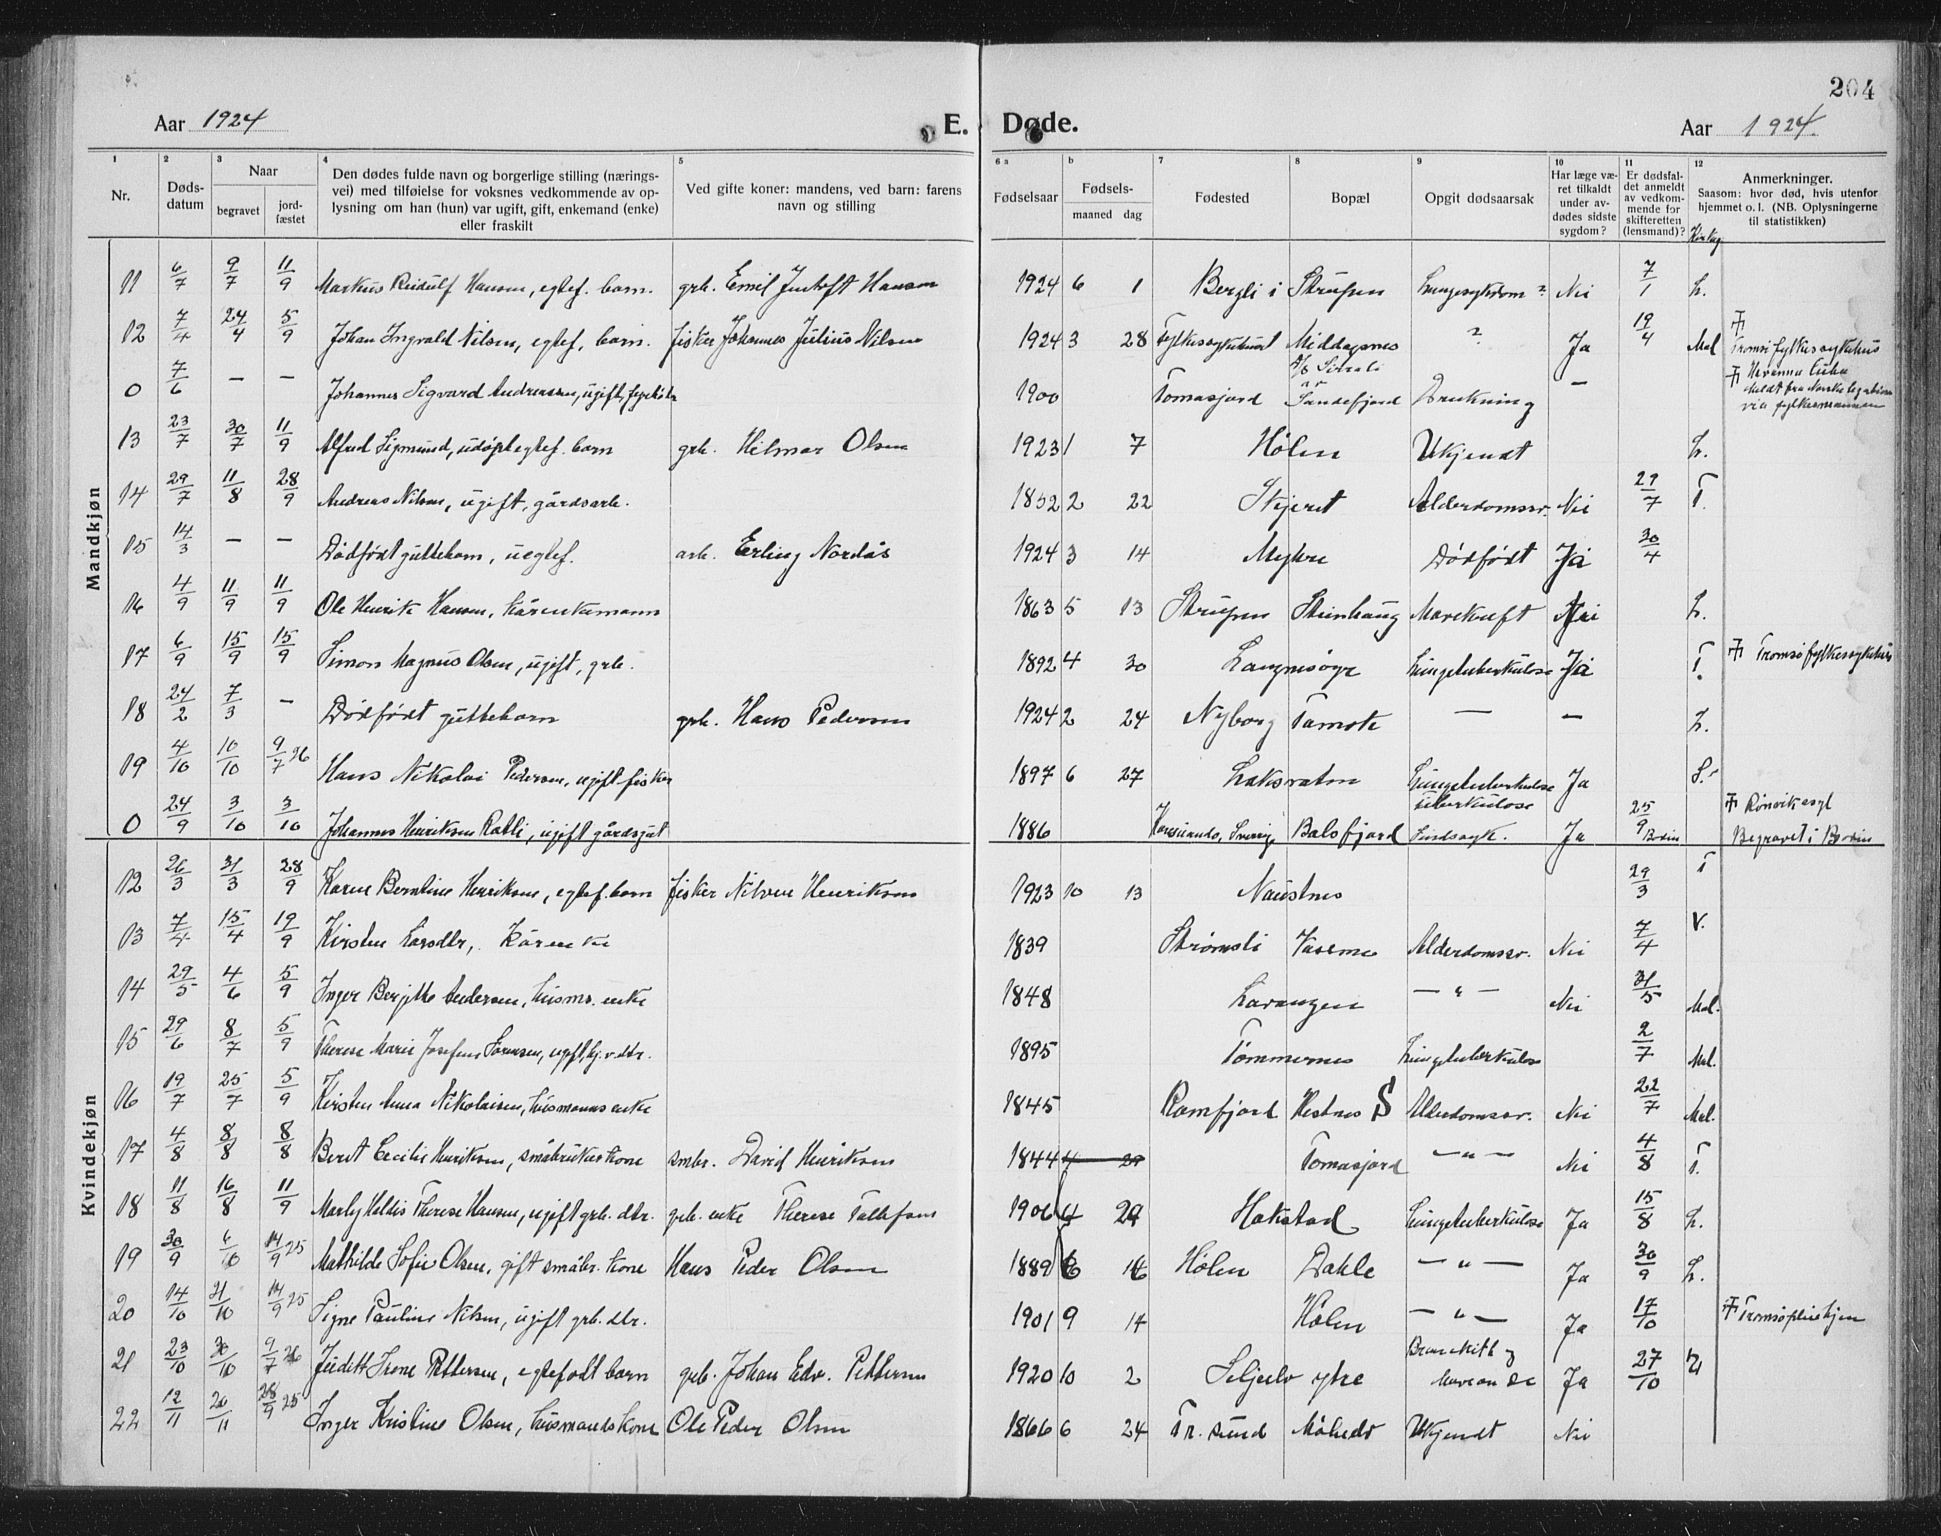 204
Aar 1924 E. Døde. Aar 1924.
1 2 3 4 5 6 a b 7 8 9 10 11 12
Nr. Døds-datum Naar begravet jord-fæstet Den dødes fulde navn og borgerlige stilling (nærings-vei) med tilføielse for voksnes vedkommende av op-lysning om han (hun) var ugift, gift, enkemand (enke) eller fraskilt Ved gifte koner: mandens, ved barn: farens navn og stilling Fødselsaar Fødsels-maaned dag Fødested Bopæl Opgit dødsaarsak Har læge væ-ret tilkaldt under av-dødes sidste sygdom? Er dødsfal-det anmeldt av vedkom-mende for skifteretten (lensmand)? Anmerkninger. Saasom: hvor død, hvis utenfor hjemmet o. l. (NB. Oplysningerne til statistikken)
Mandkjøn
11 6/7 9/7 11/9 Markus Reidulf Hansen, egtef. barn. grb. Emil Hansen 1924 6 1 Bergli i Strupen Lungesykdom ? Nei 7/1 L.
12 7/4 24/4 5/9 Johan Ingvald Nilsen, egtef. barn. fisker Johannes Julius Nilsen 1924 3 28 Middagsnes ? Ja 19/4 Mal Tromsø fylkessykehus
0 7/6 — — Johannes Sigvard Andreassen, ugift, 1900 Tomasjord Sandefjord Drukning — Havanna Cuba meldt fra Norske legation via fylkesmannen
13 23/7 30/7 11/9 Alfred Sigmund, udøpt egtef. barn grb. Hilmar Olsen 1923 1 7 Hølen Ukjendt L.
14 29/7 11/8 28/9 Andreas Nilsen, ugift, gårdsarb. 1852 2 22 Stjeret Alderdomssv. Nei 29/7 T.
15 14/3 — — Dødfødt guttebarn, uegtef. arb. Erling Nordås 1924 3 14 Mykre Dødfødt Ja 30/4
16 4/9 11/9 11/9 Ole Henrik Hansen, kårenkemann 1863 5 13 Strupen Steinhaug Mavekræft Nei L.
17 6/9 15/9 15/9 Simon Magnus Olsen, ugift, grb. 1892 4 30 Langnesøre Lungetuberkulose Ja T. Tromsø fylkessykehus
18 24/2 7/3 — Dødfødt guttebarn grb. Hans Pedersen 1924 2 24 Nyborg Tamok — — L.
19 4/10 10/10 9/7 26 Hans Nikolai Pedersen, ugift fisker 1897 6 27 Laksvatn Lungetuberkulose Ja S.
0 24/9 3/10 3/10 Johannes Henriksen Ratli, ugift gårdsgut 1886 Karesuando, Sverrig Balsfjord tuberkulose Sindssyk. Ja 25/9 Bodin Rønvik asyl Begravet i Bodin
Kvindekjøn
12 26/3 31/3 28/9 Karen Berntine Henriksen, egtef. barn fisker Nilsen Henriksen 1923 10 13 Naustnes 29/3 T
13 7/4 15/4 19/9 Kirsten Larsdtr, kårenke 1839 Strømsli Alderdomssv. Nei 7/4 V.
14 29/5 4/6 5/9 Inger Berjitte Andersen, husms. enke 1848 Lavangen — " — Nei 31/5 Mal.
15 29/6 8/7 5/9 Therese Marie Josefine Sørensen, ugift, hj.v. dtr. 1895 Tømmernes Lungetuberkulose 2/7 Mal.
16 19/7 25/7 5/9 Kirsten Anna Nikolaisen, husmanns enke 1845 Ramfjord Hestnes S Alderdomssv. Nei 22/7 Mal.
17 4/8 8/8 8/8 Beret Cecilie Henriksen, småbrukerkone smbr. David Henriksen 1844 4 29 Tomasjord — " — Nei 4/8 T.
18 11/8 16/8 11/9 Marly Heldis Therese Hansen, ugift grb. dtr. grb. enke Therese Tollefsen 1906 4 29 Hakstad Lungetuberkulose Ja 15/8 L.
19 30/9 6/10 14/9 25 Mathilde Sofie Olsen, gift småbr. kone Hans Peder Olsen 1889 6 16 Hølen Dahle — " — Ja 30/9 L.
20 14/10 21/10 14/9 25 Signe Pauline Nilsen, ugift grb. dtr. 1901 9 14 Hølen — " — Ja 17/10 Tromsøpleiehjem
21 23/10 30/10 9/7 26 Judett Irene Pettersen, egtefødt barn grb. Johan Edv. Pettersen 1920 10 2 Seljelv ytre Bronchitt og Ja 27/10
22 12/11 20/11 28/9 25 Inger Kristine Olsen, husmandskone Ole Peder Olsen 1866 6 24 Tr. sund Målselv Ukjendt Nei